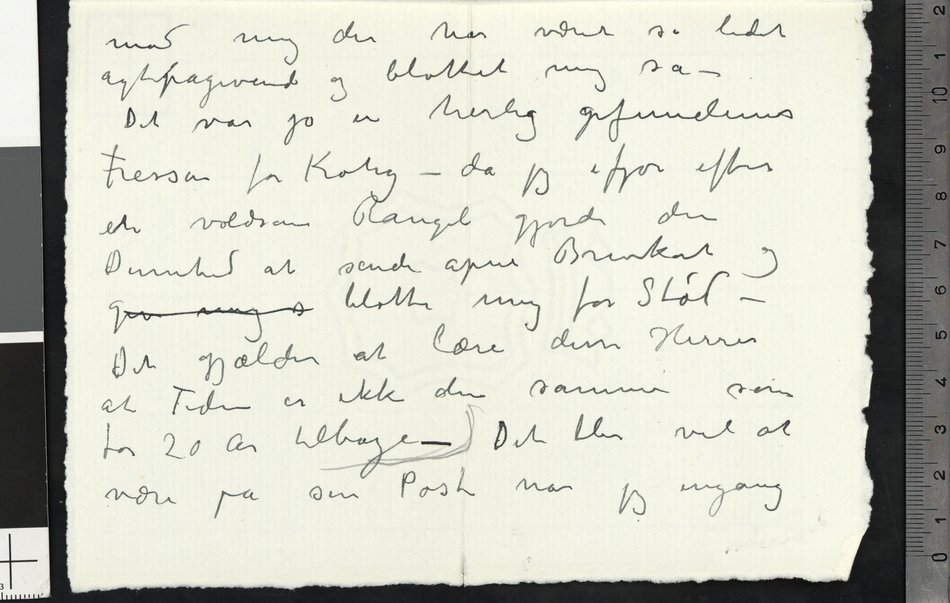 mod mig der har været så lidet
agtpågivende og blottet mig så –
Det var jo en herlig gefundenes
Fressen for Krohg – da jeg ifjor efter
en voldsom Rangel gjorde den
Dumhed at sende åpne Brevkort og
gav mig s blotte mig for Stød –
Det gjælder at lære disse Herrer
at Tiden er ikke den samme som
for 20 År tilbage – Det blir vel at
være på sin Post når jeg engang